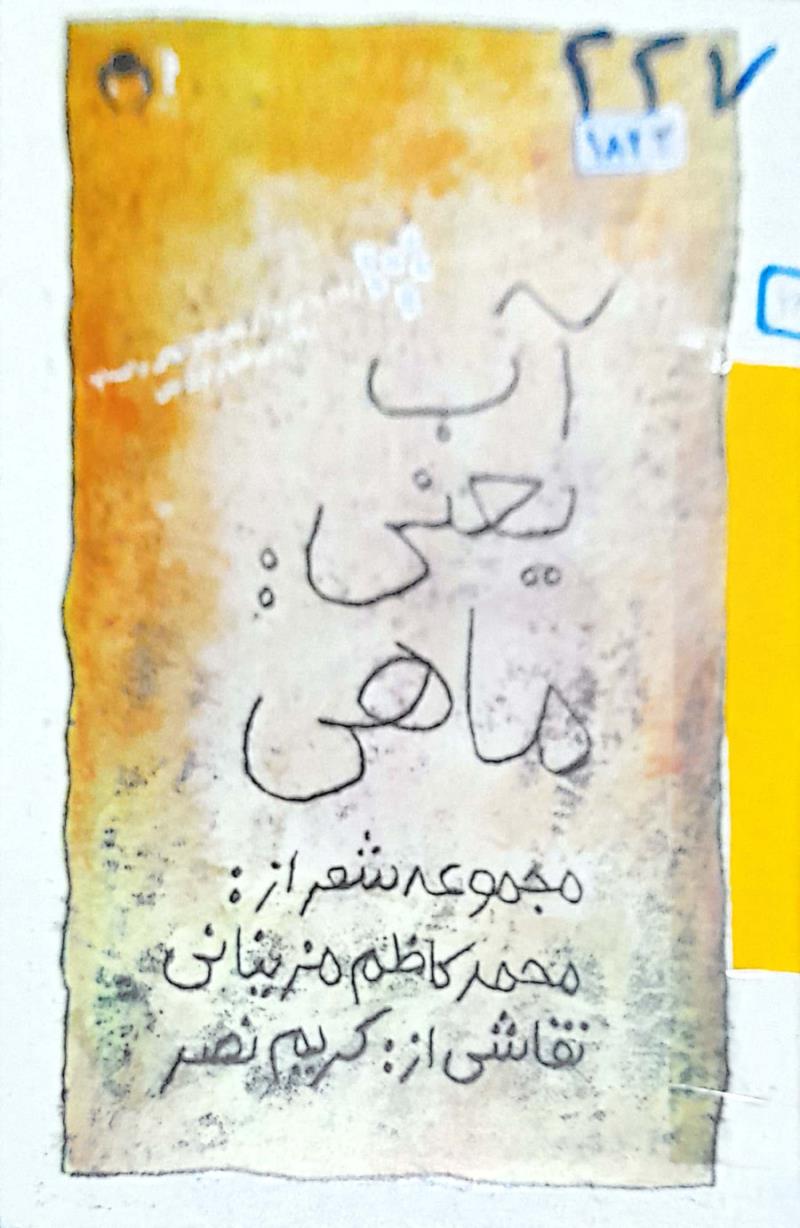 ۲۲۷
۱۸۲۲
آب
یعنی:
ماهی
مجموعه شعر از:
محمدکاظم مزینانی
نقاشی از: کریم نصر